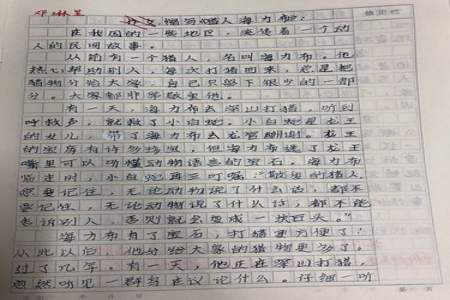 邓琳星
作文：缩写《猎人海力布》
在我国的一些地区，流传着一个动
人的民间故事。
从前有一个猎人，名叫海力布。他
热心帮助别人，每次打猎回来，总是把
猎物分给大家，自己只留下很少的一部
分。大家都非常敬爱他。
有一天，海力布去深山打猎，听到
呼救声，就救了小白蛇。小白蛇是龙王
的女儿，带了海力布去龙宫酬谢。龙王
的宝库有许多珍宝，但海力布选了龙王
嘴里可以听懂动物语言的宝石。海力布
临走时，小白蛇再三叮嘱：“敬爱的猎人，
您要记住，无论动物说了什么话，都不
要记住，无论动物说了什么话，都不能
告诉别人，否则就会变成一块石头。”
海力布有了宝石，打猎更方便了！
从此以后，他分给大家的猎物更多了。
过了几年。有一天，他正在深山打猎，
忽然听见一群鸟在议论什么。仔细一听